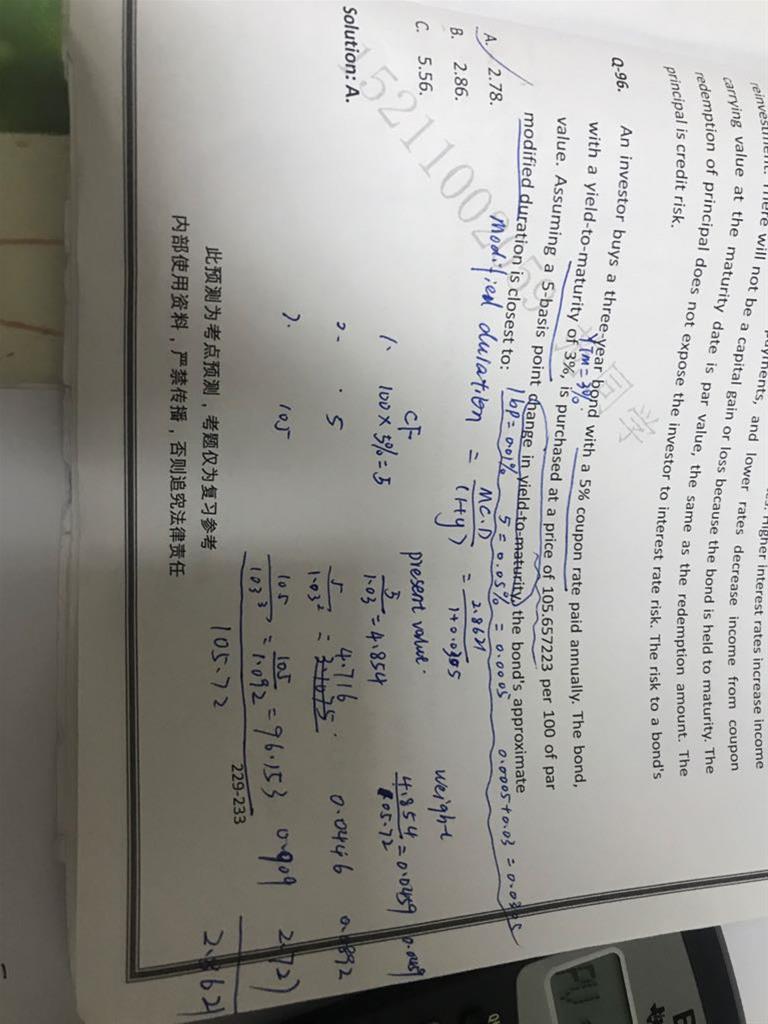 reinvestment. There will not be a capital gain or loss because the bond is held to maturity. The
payments, and lower rates decrease income from coupon
Higher interest rates increase income
carrying value at the maturity date is par value, the same as the redemption amount. The
redemption of principal does not expose the investor to interest rate risk. The risk to a bond's
principal is credit risk.
Q-96. An investor buys a three-year bond with a 5% coupon rate paid annually. The bond,
YTM=3%.
with a yield-to-maturity of 3%, is purchased at a price of 105.657223 per 100 of par
value. Assuming a 5-basis point change in yield-to-maturity, the bond's approximate
modified duration is closest to:
1bp=0.01% 5=0.05% =0.0005 0.0005+0.03=0.0305
A. 2.78.
B. 2.86.
C. 5.56.
Modified duration = MC.D / (1+y) = 2.8621 / 1+0.0305
Solution: A.
CF present value. weight
1. 100×5%=5 5/1.03 = 4.854 4.854/105.72 = 0.0459 0.0459
2. 5 5/1.03² = 4.716 0.0446 0.0892
3. 105 105/1.03³ = 105/1.092 = 96.153 0.909 2.727
105.72 2.8621
229-233
此预测为考点预测，考题仅为复习参考
内部使用资料，严禁传播，否则追究法律责任
同学